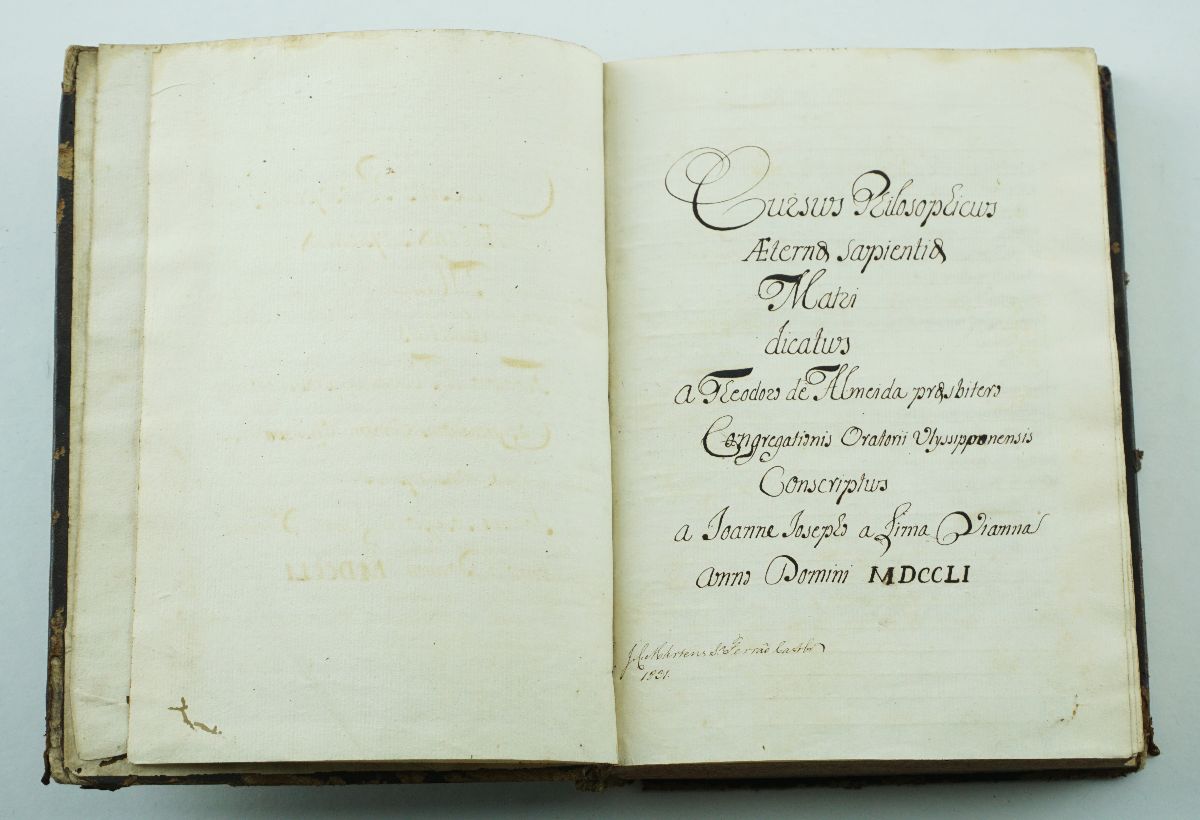 Cursus Philosophicus
Æternæ sapientiæ
Matri
dicatus
a Theodoro de Almeida præsbitero
Congregationis Oratorii Ulyssipponensis
Conscriptus
a Joanne Josepho a Lima Vianna
anno Domini MDCCLI
Martens Ferrão Castel
1831.